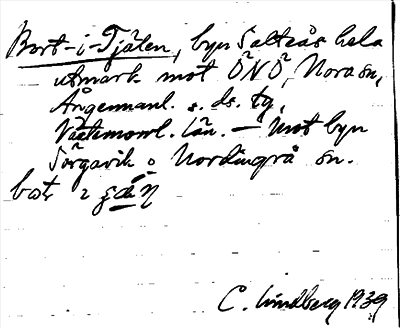 Bort-i-Tjälen, byn Saltsås hela
utmark mot ÖNÖ, Nora sn,
Ångermanl. s. ds. tg,
Västernorrl. län. — Mot byn
Sörgavik o Nordingrå sn.
C. Lindberg 1939